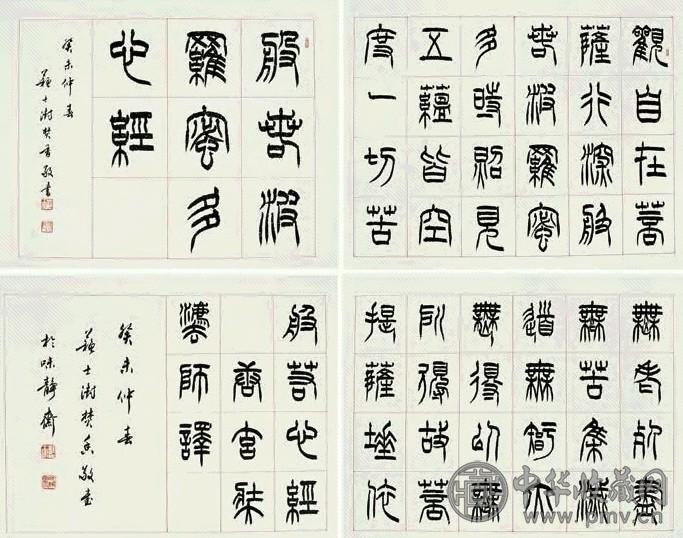 般若波
羅蜜多
心經
癸未仲春
蘇士澍焚香敬書
觀自在菩
薩行深般
若波羅蜜
多時照見
五蘊皆空
度一切苦
般若心經
唐玄奘
灋師譯
癸未仲春
蘇士澍焚香敬書
於味靜齋
無老死盡
無苦集滅
道無智亦
無得以無
所得故菩
提薩埵依
中华收藏网
www.pmv.cn